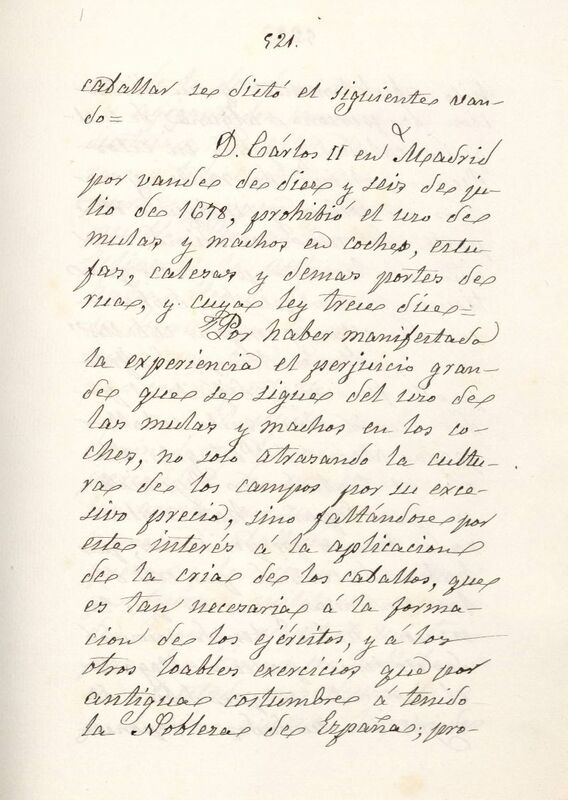 521.
caballar se dictó el siguiente van-
do=
D. Cárlos II en Madrid
por vande de diez y seis de ju-
lio de 1678, prohibió el uzo de
mulas y machos en coches, estu-
fas, calesas y demas portes de
rua, y cuya ley trece dice=
"Por haber manifestado
la experiencia el perjuicio gran-
de que se sigue del uzo de
las mulas y machos en los co-
ches, no solo atrasando la cultu-
ra de los campos por su exce-
sivo precio, sino faltándose por
este interés á la aplicacion
de la cria de los caballos, que
es tan necesaria á la forma-
cion de los ejércitos, y á los
otros loables exercicios que por
antigua costumbre á tenido
la Nobleza de España; pro-